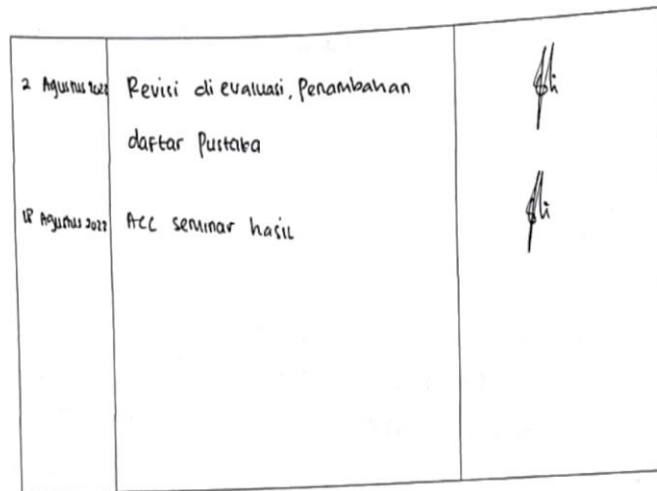 2 Agustus 2022 Revisi di evaluasi, Penambahan
daftar Pustaka
18 Agustus 2022 ACC seminar hasil